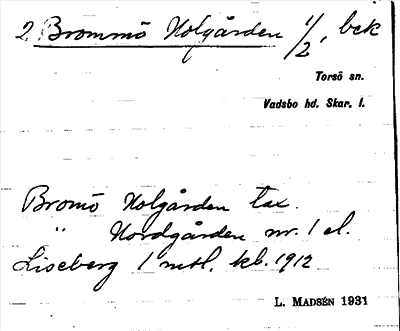 2 Brommö Holgården 1/2, bck
Torsö sn.
Vadsbo hd. Skar. l.
Bromö Holgården tax.
" Nordgården nr. 1 el.
Liseberg 1 mtl. kb. 1912
L. MADSÉN 1931